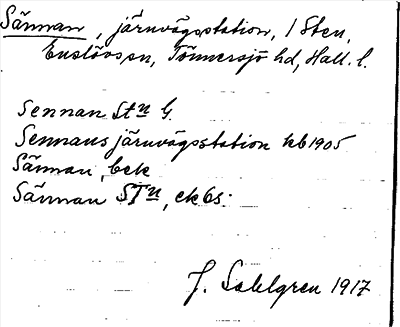 Sännan, järnvägsstation, i Sten,
Enslövs sn, Tönnersjö hd, Hall. l.
Sennan Stn G.
Sennans järnvägsstation kb 1905
Sännan, bek
Sännan STn, ek 6s.
J. Sahlgren 1917